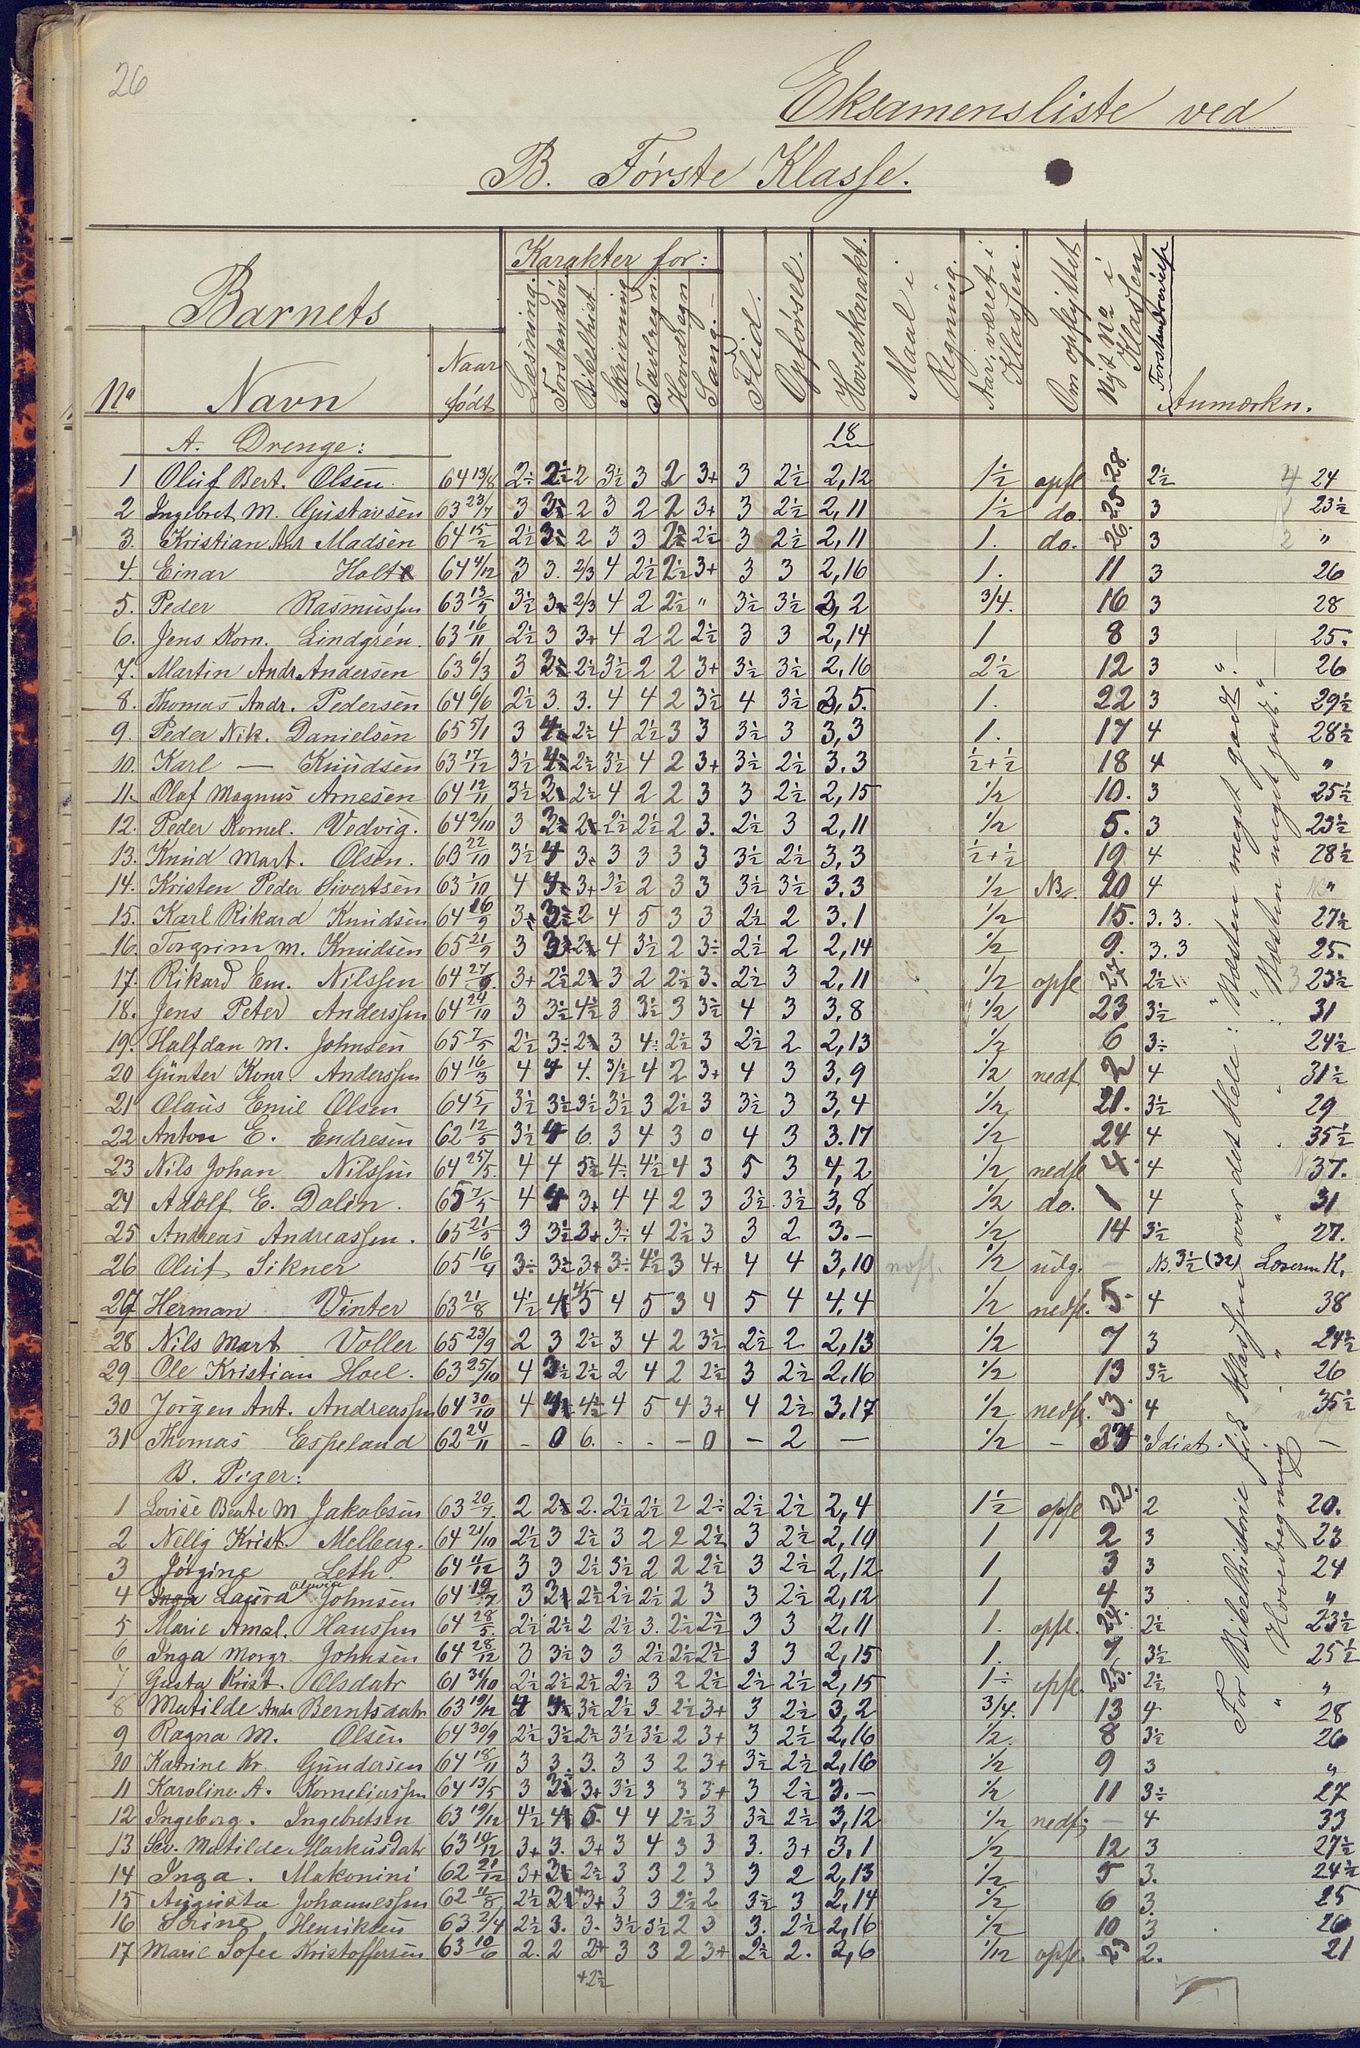 26
Eksamensliste ved
B. Første Klasse.
Barnets
Karakter for:
No Navn Naar født Læsning. Forstandsø. Bibelhist. Skrivning Tavlregn. Hovedregn Sang. Flid. Opførsel. Hovedkarakt. Maal i Regning. Aar, været i Klassen. Om opflyttet Nyt No i Klassen Anmærkn.
A. Drenge: 18
1 Oluf Bert. Olsen 64 13/8 2÷ 2½ 2 3½ 3 2 3+ 3 2½ 2,12 1½ opfl. 28. 2½ 4 24
2 Ingebret M. Gustavsen 63 23/7 3 3 2 3 2 2 3+ 3 2½ 2,11 1½ do. 25. 3 23½
3. Kristian Madsen 64 15/2 2½ 3 2 3 3 2 2½ 3 2½ 2,11 1. do. 26. 3 2 "
4. Einar Holt 64 4/12 3 3. 2/3 4 2½ 2½ 3+ 3 3 2,16 1. 11 3 26
5. Peder Rasmussen 63 13/5 3½ 3 2/3 4 2 2½ " 3½ 3½ 3, 2 3/4. 16 3 28
6. Jens Korn. Lindgrén. 63 16/11 2½ 3 3+ 4 2 2 2½ 3 3 2,14 1 8 3 25.
7. Martin Andr. Andersen 63 6/3 3 3 2½ 3½ 2 2 3+ 3½ 3½ 2,16 2½ 12 3 26
8. Thomas Andr. Pedersen 64 6/6 2½ 3. 3. 4 4 2 3½ 4 3½ 3,5. 1. 22 3 29½
9. Peder Nik. Danielsen 65 5/1 3 4 2½ 4 2½ 3 3 3½ 3 3,3 1. 17 4 28½
10. Karl — Knudsen 63 17/12 3½ 4 2½ 3½ 4 2 3+ 3½ 2½ 3.3 ½+½ 18 4 "
11. Olaf Magnus Arnesen. 64 12/11 3½ 3 2½ 4 2 2 3 3 2½ 2,15 1/2 10. 3 25½
12. Peder Kornel. Vedvig. 64 2/10 3 3 2 2½ 2½ 2 3. 2½ 3 2,11 1/2 5. 3 23½
13. Knud Mart. Olsen. 63 22/10 3½ 4 3. 3 3 3 3 3½ 2½ 3,3 ½+½ 19 4 28½
14. Kristen Peder Sivertsen 63 1/10 4 4 3+ 3½ 2 3 3 3½ 3½ 3.3 1/2 20 4 "
15. Karl Rikard Knudsen 64 16/9 3 3 2 4 5 3 3 2½ 2 3.1 1/2 15. 3. 3. 27½
16. Torgrim M. Knudsen 65 21/9 3 3 2 4 3½ 2 3÷ 2½ 2 2,14 1/2 9. 3. 3 25.
17. Rikard Em. Nilssen 64 27/9. 3+ 2½ 2 3 2 2½ 3. 2½ 3 2,11 1/2 opfl 27 2½ 3 23½
18. Jens Peter Anderssen 64 24/10 3 3½ 4½ 3 3½ 3 3½ 4 3 3,8 1/2 23 3½ 31
19. Halfdan M. Johnsen 65 7/5 2½ 3÷ 2 3 4÷ 2½ 3 2½ 2 2,13 1/2 6 3÷ 24½
20 Günter Konr. Anderssen 64 16/3 4 4 4. 3½ 4 2 3+ 4 3 3,9 1/2 nedf. 2 4 31½
21 Olaus Emil Olsen 64 5/1 3½ 3½ 3½ 3½ 3 2½ 3 3½ 3 3,4 1/2 21. 3½ 29
22 Anton E. Endresen 62 12/5 3½ 4 6. 3 4 3 0 4 3 3.17 1/2 24 4 35½
23 Nils Johan Nilssen 64 25/5. 4 4 5½ 4÷ 4½ 4 3 5 3 4,2 1/2 nedfl 4. 4 37.
24 Adolf E. Dalén. 65 7/5 4 4 3+ 4 4 2 3 3½ 3½ 3,8 1/2 do. 1 4 31
25 Andreas Andreassen. 65 21/5 3 3½ 3+ 3÷ 4 2½ 3 3 2 3.— 1/2 14 3½ 27.
26 Oluf Sikner 65 16/4 3÷ 3½ 3+ 3÷ 4½ 3 4+ 4 4 3,10 1/2 udg. — 3½ (32)
27 Herman Vinter 63 21/8 4½ 4 5 4 5 3 4 5 4 4.4 1/2 nedfl. 5. 4 38
28 Nils Mart Voller 65 23/9 2 3 2½ 3 4 2 3½ 2½ 2 2,13 1/2 7 3 24½
29 Ole Kristian Hoel. 63 25/10 4 3½ 2½ 2 4 2 2½ 3 2½ 2,16 1/2 13 3½ 26
30 Jørgen Ant. Andreassen 64 30/10 4 4 4½ 4 5 4 3+ 4 2½ 3.17 1/2 nedfl. 3. 4 35½
31 Thomas Espeland 62 24/11 - 0 6. . . - 0 - 2 — 1/2 - Idiot. —
B. Piger:
1 Lovise Beate M. Jakobsen 63 20/7. 2 2 2. 2½ 2½ 2 2÷ 2½ 2½ 2,4 1½ opfl 22. 2 20.
2 Nelly Krist. Melberg. 64 21/10 2½ 3 2½ 3 2 2 2½ 3 2½ 2,10 1 2 3 23
3 Jørgine Leth. 64 11/12 3 3 2½ 3½ 2 2 2½ 3 2½ 2,12 1 3 3 24
4 Inga Laura Olevia Johnsen 64 19/7 3 3 2½ 2½ 2½ 2 3 3 2½ 2,12 1 4 3 "
5 Marie Amal. Hanssen 64 28/5. 2½ 2½ 2 2½ 3. 2½ 2½ 3 3 2,11 1. opfl. 24. 2½ 23½
6 Inga Margr. Johnsen 64 28/12 3 3½ 3 3 2½ 2½ 2½ 3 3 2,15 1. 7 3½ 25½
7 Gusta Krist. Olsdatr 61 31/10 2½ 2½ 2½ 2½ 3 2 2½ 2½ 2½ 2,15 1÷ opfl. 25. 2½ "
8 Matilde Andr Berntsdatr 63 19/12 4 4 3½ 2½ 3 2½ 3+ 3 2½ 3,2 3/4. 13 4 28
9 Ragna M. Olsen 64 30/9 2½ 3½ 2½ 3½ 3½ 2 3+ 3 2½ 2,16 1/2. 8 3½ 26
10 Katrine Kr. Gundersen 64 18/11 3 3. 3. 3 3 2 3+ 3½ 2½ 2,16 1/2 9 3 "
11 Karoline A. Korneliussen 64 13/5 3 3 3+ 3½ 3 3 3+ 3 2½ 3.— 1/2 11 3÷ 27
12 Ingeborg. Ingebretsen 63 19/12 4½ 4 5. 4 4 2½ 3 3½ 2½ 3,12 1/2 nedf. — 4 33
13 Sev. Matilde Markusdatr 63 10/12 3+ 3. 3+ 3 4 3 3 3. 3+ 3,1 1/2 12 3 27½
14 Inga. Makonini 62 21/12 3+ 3 2½ 3 3 2 3 3 2 2,13 1/2 5 3. 24½
15 Augusta Johannessen 62 11/8 2½ 3 3+ 3 3 2½ 2 3½ 3 2,14 1/2 6 3. 25
16 Serine Henriksen 63 2/4 2½ 3. 3. 3½ 3½ 2 3 3. 2½ 2,16 1/2 10 3 26
17 Marie Sofie Kristoffersen 63 10/6 2. 2 2+ 3 3 2 3+ 2½ 2. 2,6 1/12 opfl. 23 2. 21
+2½
For Bibelhistorie fik Klassen over det Hele: "Næsten meget godt".
" Hovedregning " " : "Næsten meget godt."